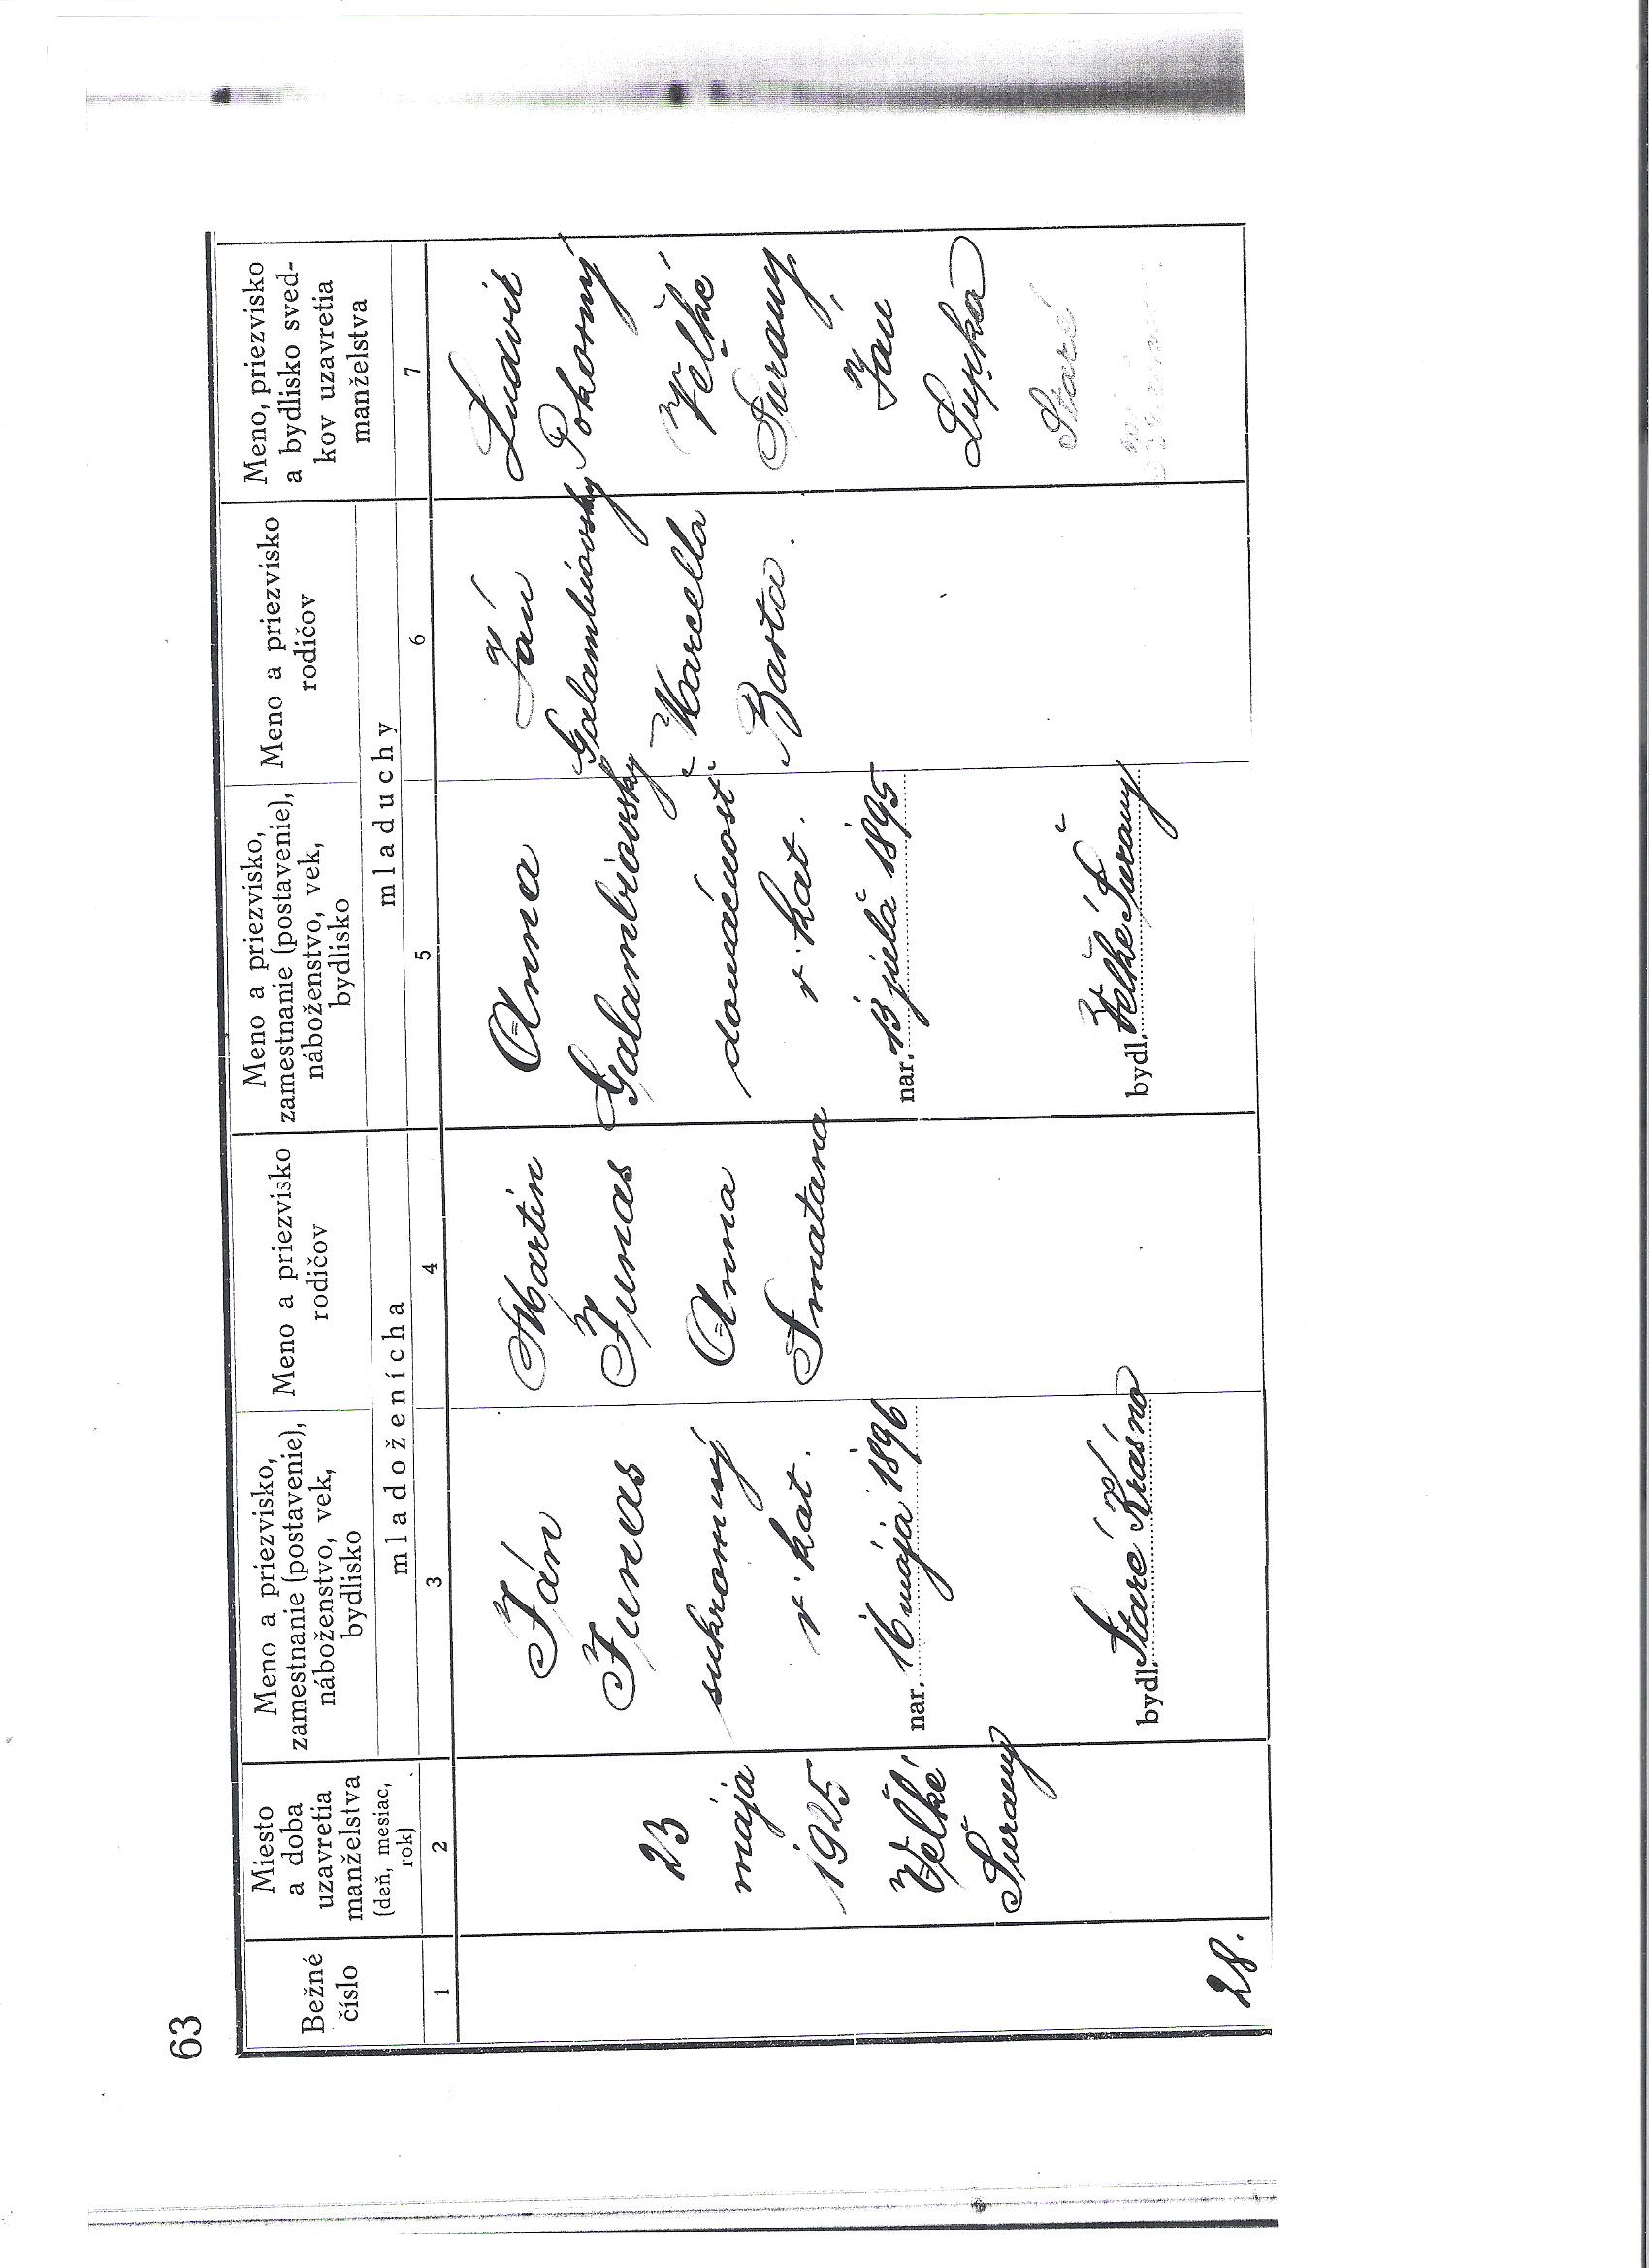 63
Bežné
číslo
Miesto
a doba
uzavretia
manželstva
(deň, mesiac,
rok)
Meno a priezvisko,
zamestnanie (postavenie),
náboženstvo, vek,
bydlisko
Meno a priezvisko
rodičov
mladoženícha
Meno a priezvisko,
zamestnanie (postavenie),
náboženstvo, vek,
bydlisko
Meno a priezvisko
rodičov
mladuchy
Meno, priezvisko
a bydlisko sved-
kov uzavretia
manželstva
1
2
3
4
5
6
7
28.
23
mája
1925
Veľké
Šurany
Ján
Junas
sukromný
r. kat.
nar. 16 mája 1896
bydl. Staré Krásno
Martin
Junas
Anna
Smatana
Anna
Galambiovsky
domácnosť
r. kat.
nar. 13 jula 1895
bydl. Veľké Šurany
Ján
Galambiovsky
Marcella
Barta.
Ludvik
Pokorný
Veľké
Šurany,
Ján
Ľupka
Staré